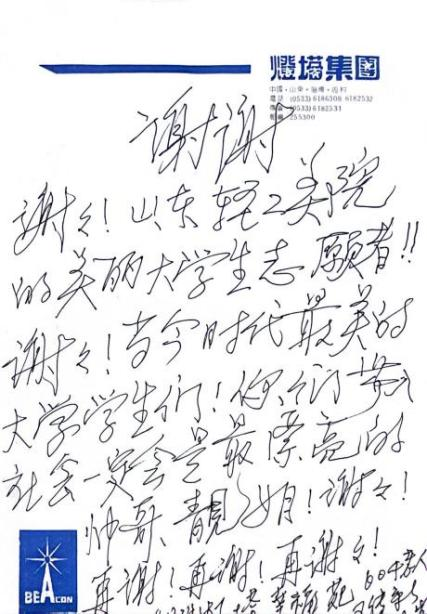 燈塔集团
中國·山東·淄博·周村
電話：(0533) 6186508 6182532
傳真：(0533) 6182531
郵編：255300
谢谢
谢々！山东轻工美院
的美丽大学生志愿者!!
谢々！当今时代最美的
大学学生们！你们
社会一定会是最漂亮的
帅哥、靓女月！谢々！
再谢！再谢！再谢！
BEACON